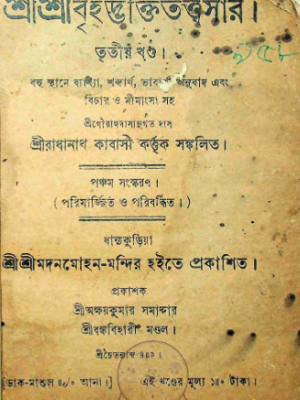 শ্রীশ্রীবৃহদ্ভক্তিতত্ত্বসার।
তৃতীয় খণ্ড।
বহু স্থানে ব্যাখ্যা, শব্দার্থ, ভাবার্থ অনুবাদ এবং
বিচার ও মীমাংসা সহ
দাস
শ্রীরাধানাথ কাবাসী কর্ত্তৃক সঙ্কলিত।
পঞ্চম সংস্করণ।
(পরিমার্জ্জিত ও পরিবর্দ্ধিত।)
ধান্যকুড়িয়া
শ্রীশ্রীমদনমোহন-মন্দির হইতে প্রকাশিত।
প্রকাশক
শ্রীঅক্ষয়কুমার সমাদ্দার
শ্রীবঙ্কবিহারী মণ্ডল।
শ্রীচৈতন্যাব্দ
[ডাক-মাশুল আনা।] এই খণ্ডের মূল্য ১৷০ টাকা।